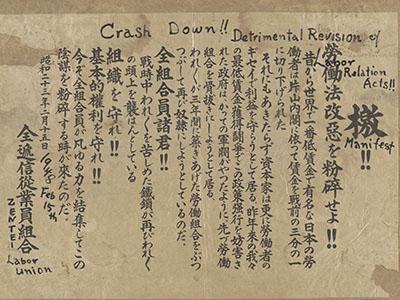 Crash Down!! Detrimental Revision of
Labor Relation
Acts!!
檄!!
Manifest
勞働法改惡を粉碎せよ!!
昔から世界で一番低賃金で有名な日本の勞
働者は片山内閣に依って賃金を戰前の三分の一
に切り下げられた
それにもあきたらず資本家は更に勞働者の
ギセイで利益を守らうとして居る。昨年来の我々
の最低賃金獲得鬪爭でこの政策強行を妨害さ
れた政府は、かつての軍閥がやつたように、先づ勞働
組合を骨抜きにしようとして居る。
われわれが三年間に築きあげた勞働組合をぶつ
つぶして再び奴隷にしようとしているのだ。
全組合員諸君!!
戰時中われわれを苦しめた鐵鎖が再びわれわれ
の頭上を襲はんとしている
組織を守れ!!
基本的權利を守れ!!
今ぞ全組合員が凡ゆる力を結集してこの
陰謀を粉碎する時が來たのだ。
昭和二十三年二月十五日
1948 Feb 15th
全逓信從業員組合
ZENTEI
Labor
Union